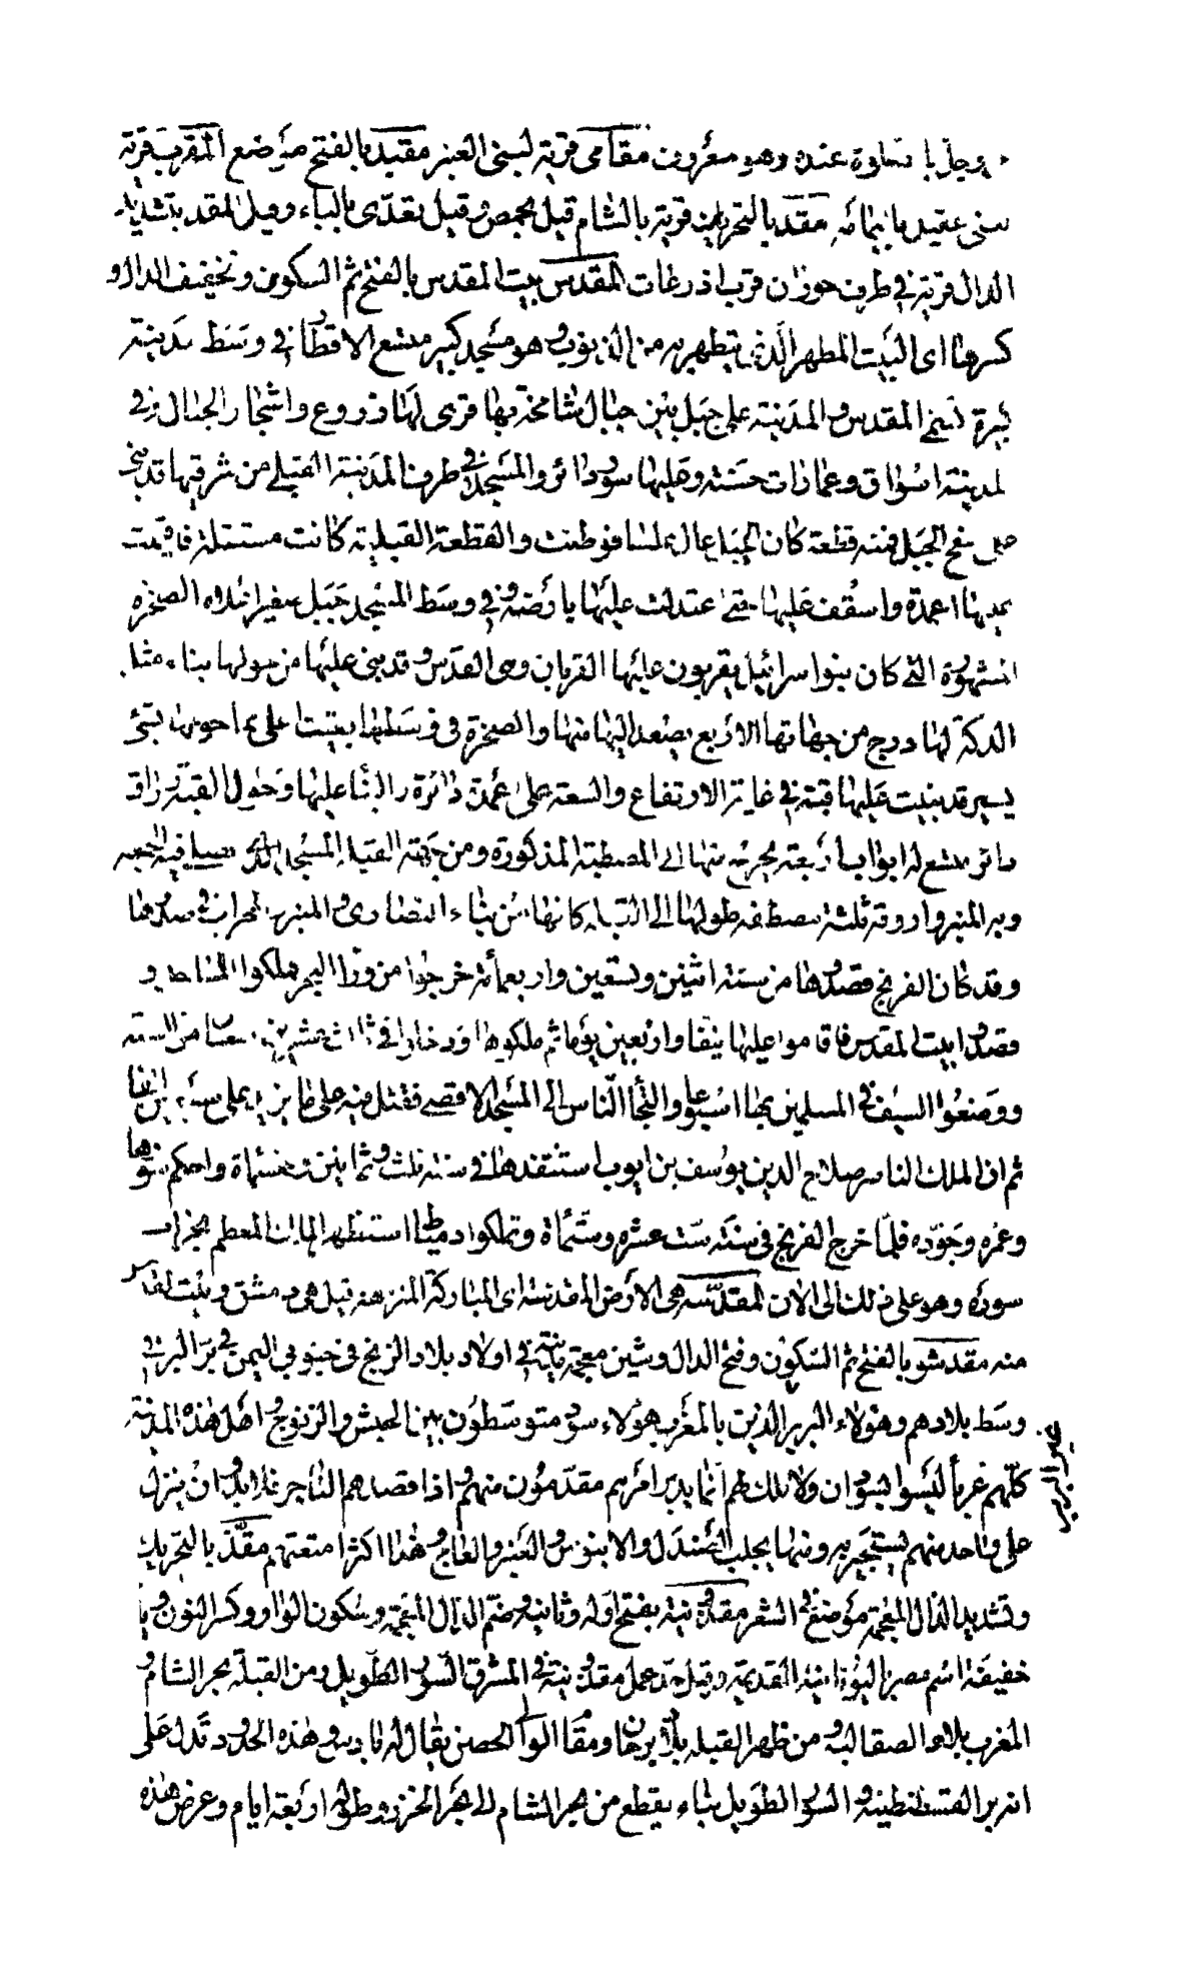 وهو معروف مقامى قرية لبنى العنبر مقيد بالفتح موضع المقرب قرية
لبنى عقيل باليمامه مقد بالتحريك قرية بالشام قيل بحمص وقيل مقدّى بالياء وقيل المقد بتشديد
الدال قرية في طرف حوران قرب اذرعات المقدس بيت المقدس بالفتح ثم السكون وتخفيف الدال و
كسرها اى البيت المطهر الذى يتطهر به من الذنوب وهو مسجد كبير متسع الاقطار في وسط مدينة
كبيرة تسمى المقدس والمدينة على جبل بين جبال شامخة بها قرى لها زروع واشجار الجبال وفى
لمدينة اسواق وعمارات حسنة وعليها سور دائر والمسجد في طرف المدينة القبلى من شرقيها قد بنى
على سفح الجبل فمنه قطعة كان الجبل عال بها فوطئت والقطعة القبلية كانت مستفلة فاقيمت
بها اعمدة واسقف عليها حتى اعتدلت عليها بارضه وفي وسط المسجد جبل صغير اعلاه الصخرة
المشهورة التى كان بنوا اسرائيل يقربون عليها القربان وهى القدس وقد بنى عليها من حولها بناء مثل
الدكة لها درج من جهاتها الاربع يصعد اليها منها والصخرة فى وسطها بقيت على ما حولها بشئ
يسير قد بنيت عليها قبة في غاية الارتفاع والسعة على اعمدة دائرة بالبناء عليها وحول القبة رواق
دائر متسع له ابواب اربعة يخرج منها الى المصطبة المذكورة ومن جهة القبلة المسجد الذى يصلى فيه الجمعه
وبه المنبر واروقة ثلثة مصطفة طولها الى القبلة كانها من بناء النصارى والمنبر والمحراب فى صدرها
وقد كان الفرنج قصدوها من سنة اثنين وتسعين واربعمائة خرجوا من وراء البحر فملكوا السواحل و
قصدوا بيت المقدس فاقاموا عليها نيفا واربعين يوما ثم ملكوها ودخلوا في ثالث عشرين شعبان من السنة
ووضعوا السيف فى المسلمين بها اسبوعا والتجأ الناس الى المسجد الاقصى فقتل فيه على ما يزيد على سبعين الفا
ثم ان الملك الناصر صلاح الدين يوسف بن ايوب استنقذها فى سنة ثلث وثمانين وخمسمائة واحكم سورها
وعمره وجوّده فلما خرج الفرنج فى سنة ست عشره وستمائة وتملكوا دمياط استظهر الملك المعظم بخراب
سوره وهو على ذلك الى الان المقدّسه هى الارض المقدسة اى المباركة المنزهة قيل هى دمشق وبيت المقدس
منه مقدشو بالفتح ثم السكون وفتح الدال وشين معجمة مدينة فى اول بلاد الزنج فى جنوبى اليمن فى بر البربر فى
وسط بلادهم وهؤلاء البربر غير البربر الذين بالمغرب هؤلاء سود متوسطون بين الحبش والزنوج واهل هذه المدينة
كلهم غرباء ليسوا بسودان ولا ملك لهم انما يدبر امرهم مقدّمون منهم واذا قصدهم التاجر فلا بد ان ينزل
على واحد منهم يستجير به ومنها يجلب الصندل والابنوس والعنبر والعاج وهذا اكثر امتعتهم مقذّ بالتحريك
وتشديد الذال المعجمة موضع فى الشعر مقذونية بفتح اوله وثانيه وضم الذال المعجمة وسكون الواو وكسر النون ويا
خفيفة اسم مصر اليونانية القديمة وقيل حد عمل مقذونية فى المشرق السور الطويل ومن القبلة بحر الشام و
المغرب بلاد الصقالبة ومن ظهر القبلة بلاد برجان ومقام الوالى حصن يقال له وهذه الحدود تدل على
انه بر القسطنطينية والسور الطويل بناء يقطع من بحر الشام الى بحر الخزر وطوله اربعة ايام وعرض هذه